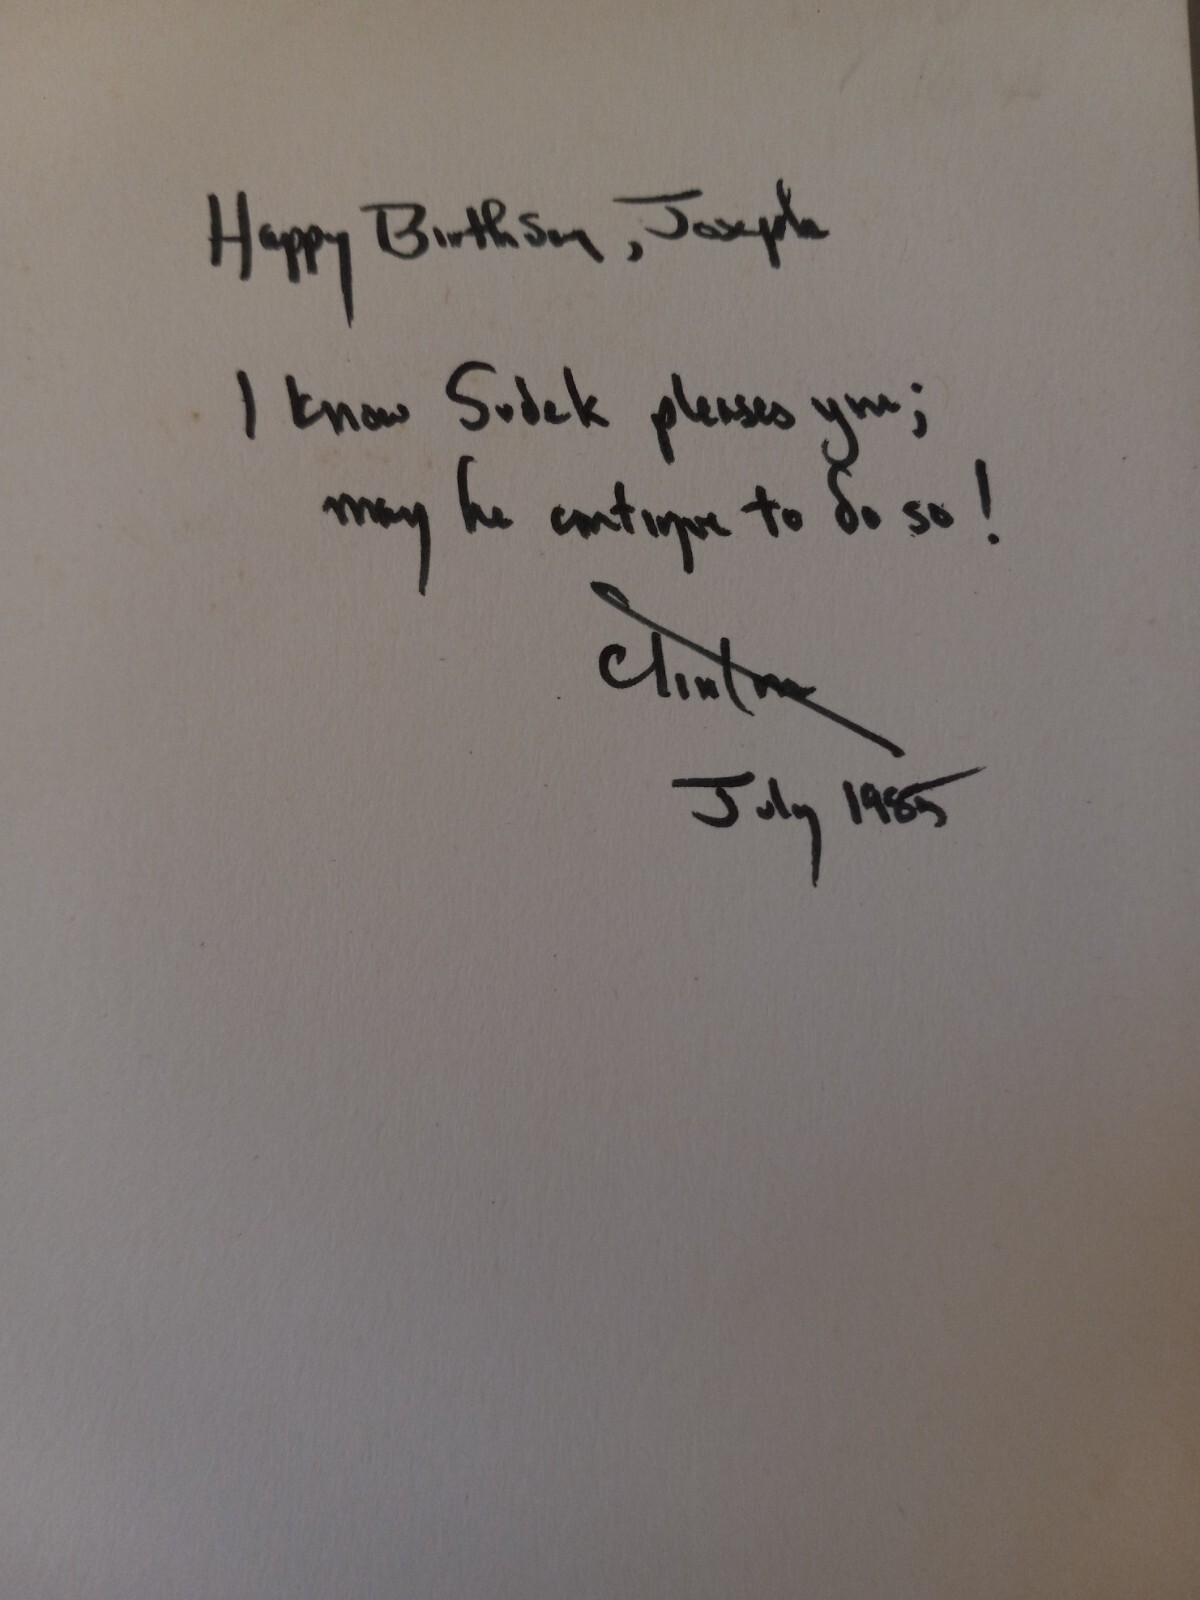 Happy Birthday, Joseph
I know Sudek pleases you;
may he continue to do so!
Clinton
July 1985